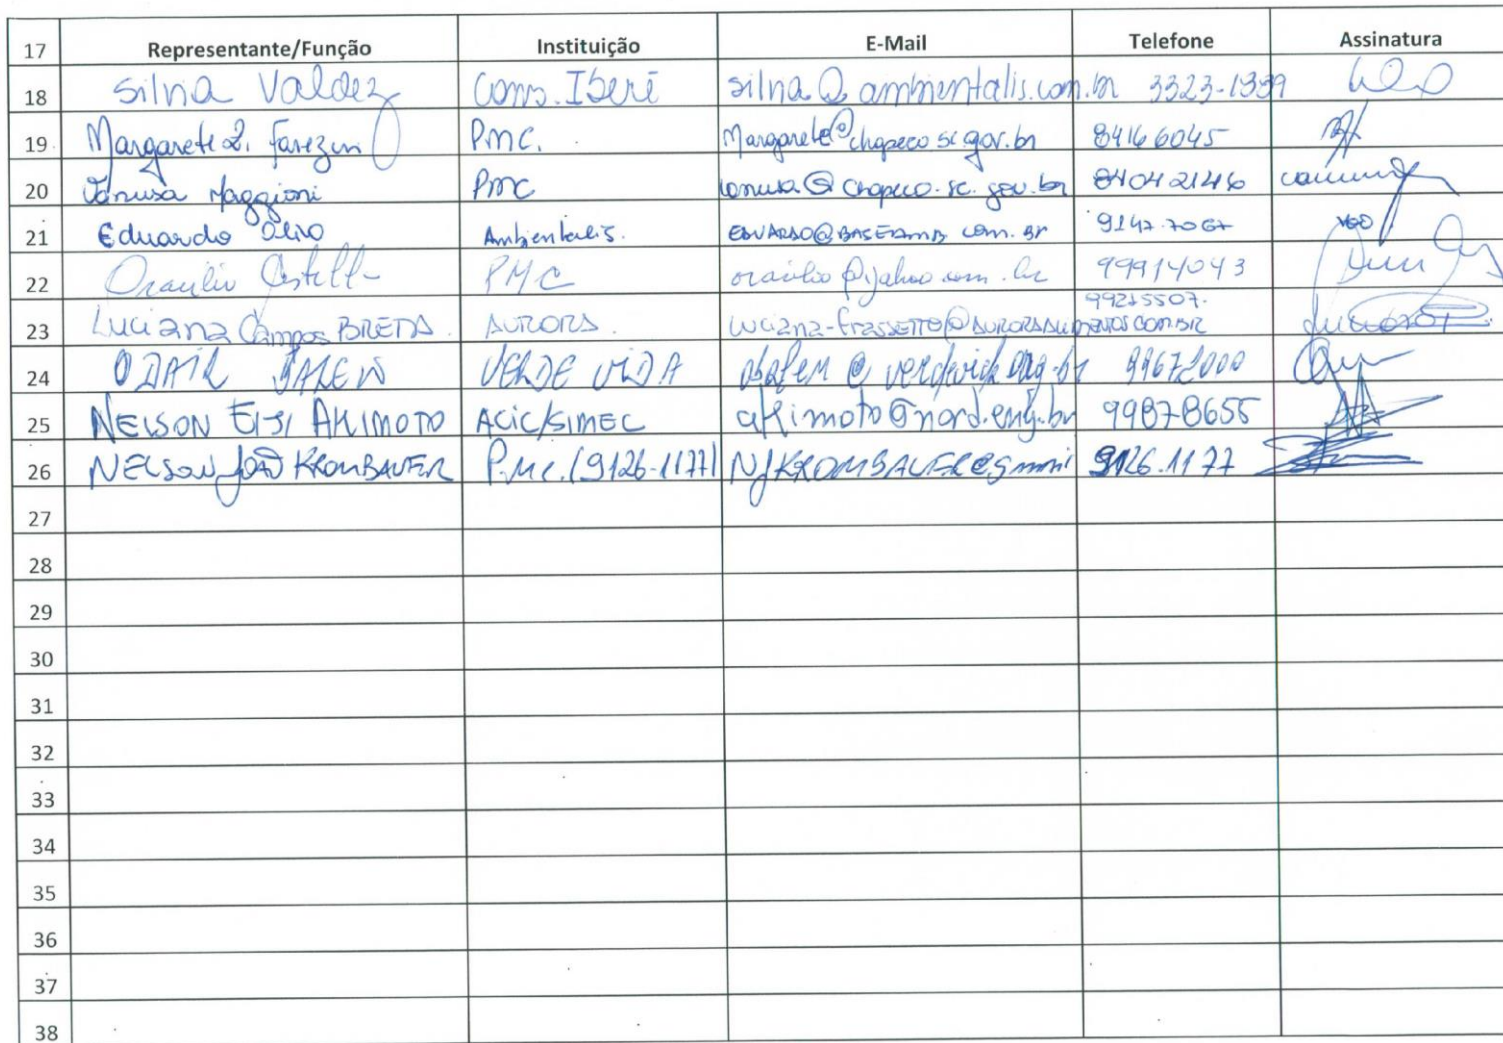 17 Representante/Função Instituição E-Mail Telefone Assinatura
18 Silvia Valdez Cons. Iberê silvia@ambientalis.com.br 3323-1339
19 Margarete L. Farezin PMC. Margarete@chapeco.sc.gov.br 84166045
20 Vanusa Maggioni PMC vanusa@chapeco.sc.gov.br 84042146
21 Eduardo Ambientalis. 9147.7067
22 Oraulio PMC oraulio@yahoo.com.br 99914043
99215507.
23 Luciana Campos BREDA. AURORA. luciana-frassetto@AURORAALIMENTOS.COM.BR
24 ODAIR BALEN VERDE VIDA 99672000
25 NELSON EIJI AKIMOTO ACIC/SIMEC akimoto@nord.eng.br 99878655
26 NELSON JOÃO KROMBAUER P.M.C. (9126-1177) NJKROMBAUER@gmail 9126.1177
27
28
29
30
31
32
33
34
35
36
37
38